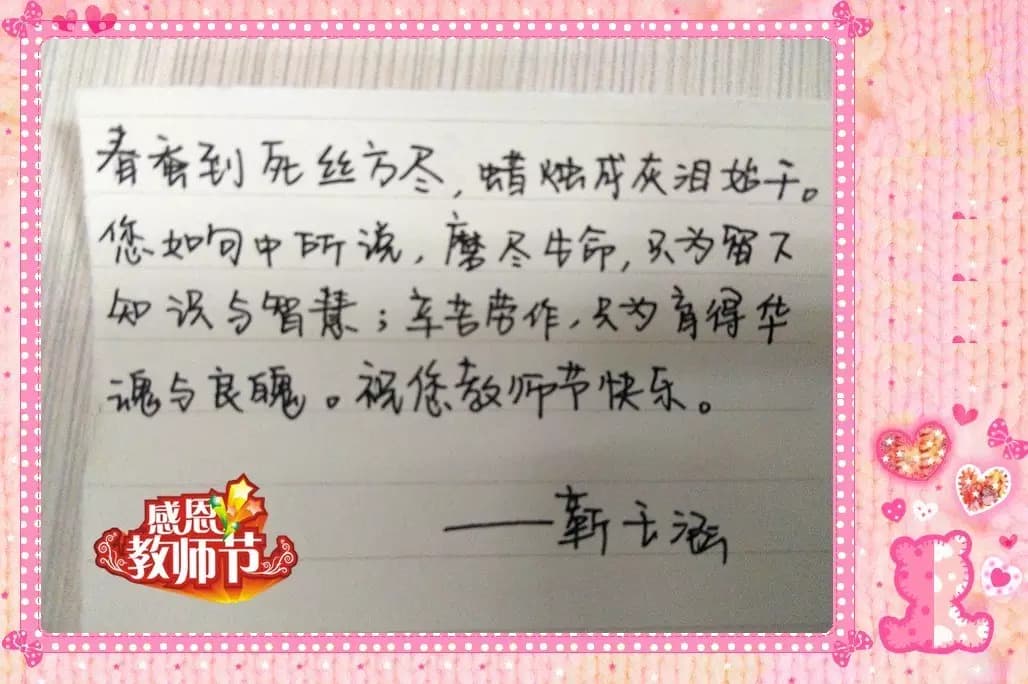 春蚕到死丝方尽，蜡烛成灰泪始干。
您如句中所说，磨尽生命，只为留下
知识与智慧；辛苦劳作，只为育得华
魂与良魄。祝您教师节快乐。
——靳云涵
感恩
教师节